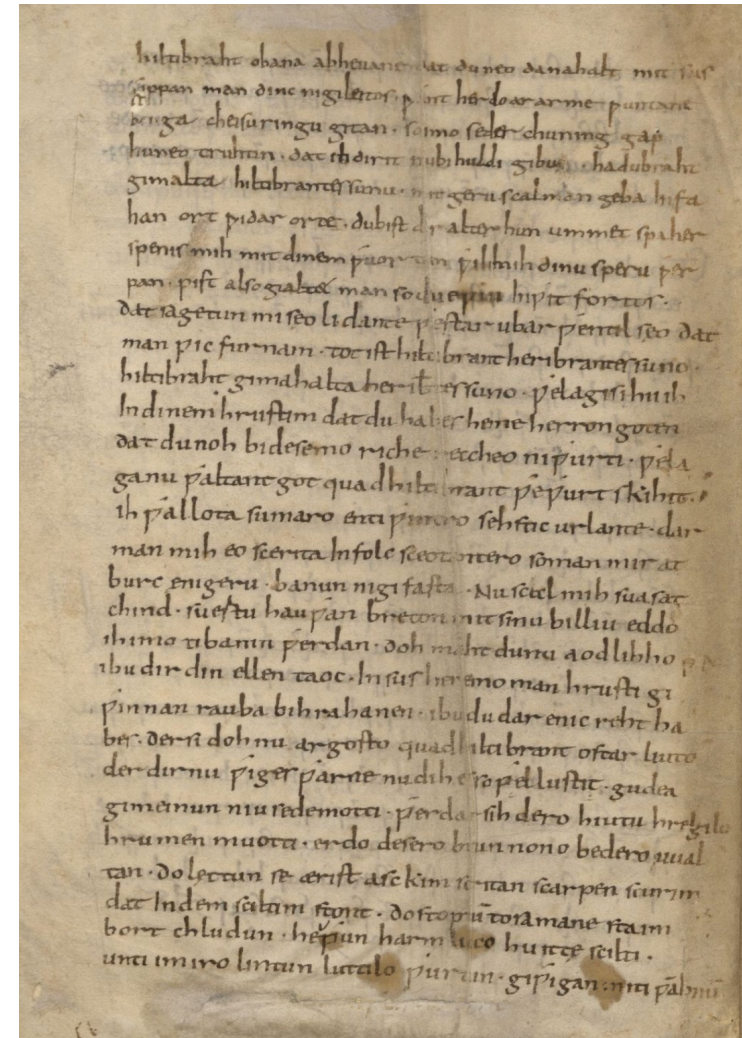 hiltibraht obana abheuane dat du neo danahalt mit sus
sippan man dinc ni gileitos · ƿant her do ar arme ƿuntane
bauga cheisuringu gitan · so imo se der chuning gap
huneo truhtin · dat ih dir it nu bi huldi gibu · hadubraht
gimalta hiltibrantes sunu · mit geru scal man geba infa
han ort ƿidar orte · du bist dir alter hun ummet spaher
spenis mih mit dinem ƿuortun ƿili mih dinu speru ƿer
pan · pist also gialtet man so du eƿin inƿit fortos ·
dat sagetun mi seo lidante ƿestar ubar ƿentilseo dat
man ƿic furnam · tot ist hiltibrant heribrantes suno ·
hiltibraht gimahalta heribtes suno · ƿela gisihu ih
In dinem hrustim dat du habes heme herron goten
dat du noh bi desemo riche reccheo ni ƿurti · ƿela
ga nu ƿaltant got quad hiltibrant ƿeƿurt skihit ·
ih ƿallota sumaro enti ƿintro sehstic ur lante · dar
man mih eo scerita In folc sceotantero so man mir at
burc enigeru · banun ni gifasta · Nu scal mih suasat
chind · suertu hauƿan breton mit sinu billiu eddo
ih imo ti banin ƿerdan · doh maht du nu aodlihho
ibu dir din ellen taoc · In sus heremo man hrusti gi
ƿinnan rauba bihrahanen · ibu du dar enic reht ha
bes · der si doh nu argosto quad hiltibrant ostarliuto
der dir nu ƿiges ƿarne nu dih es so ƿel lustit · gudea
gimeinun niuse de motti · ƿerdar sih dero hiutu hregilo
hrumen muotti · erdo desero brunnono bedero uual
tan · do lettun se ærist asckim scritan scarpen scurim
dat In dem sciltim stont · do stoptu to samane staim
bort chludun · heƿun harmlicco huitte scilti ·
unti im iro lintun luttilo ƿurtun · giƿigan miti ƿabnu